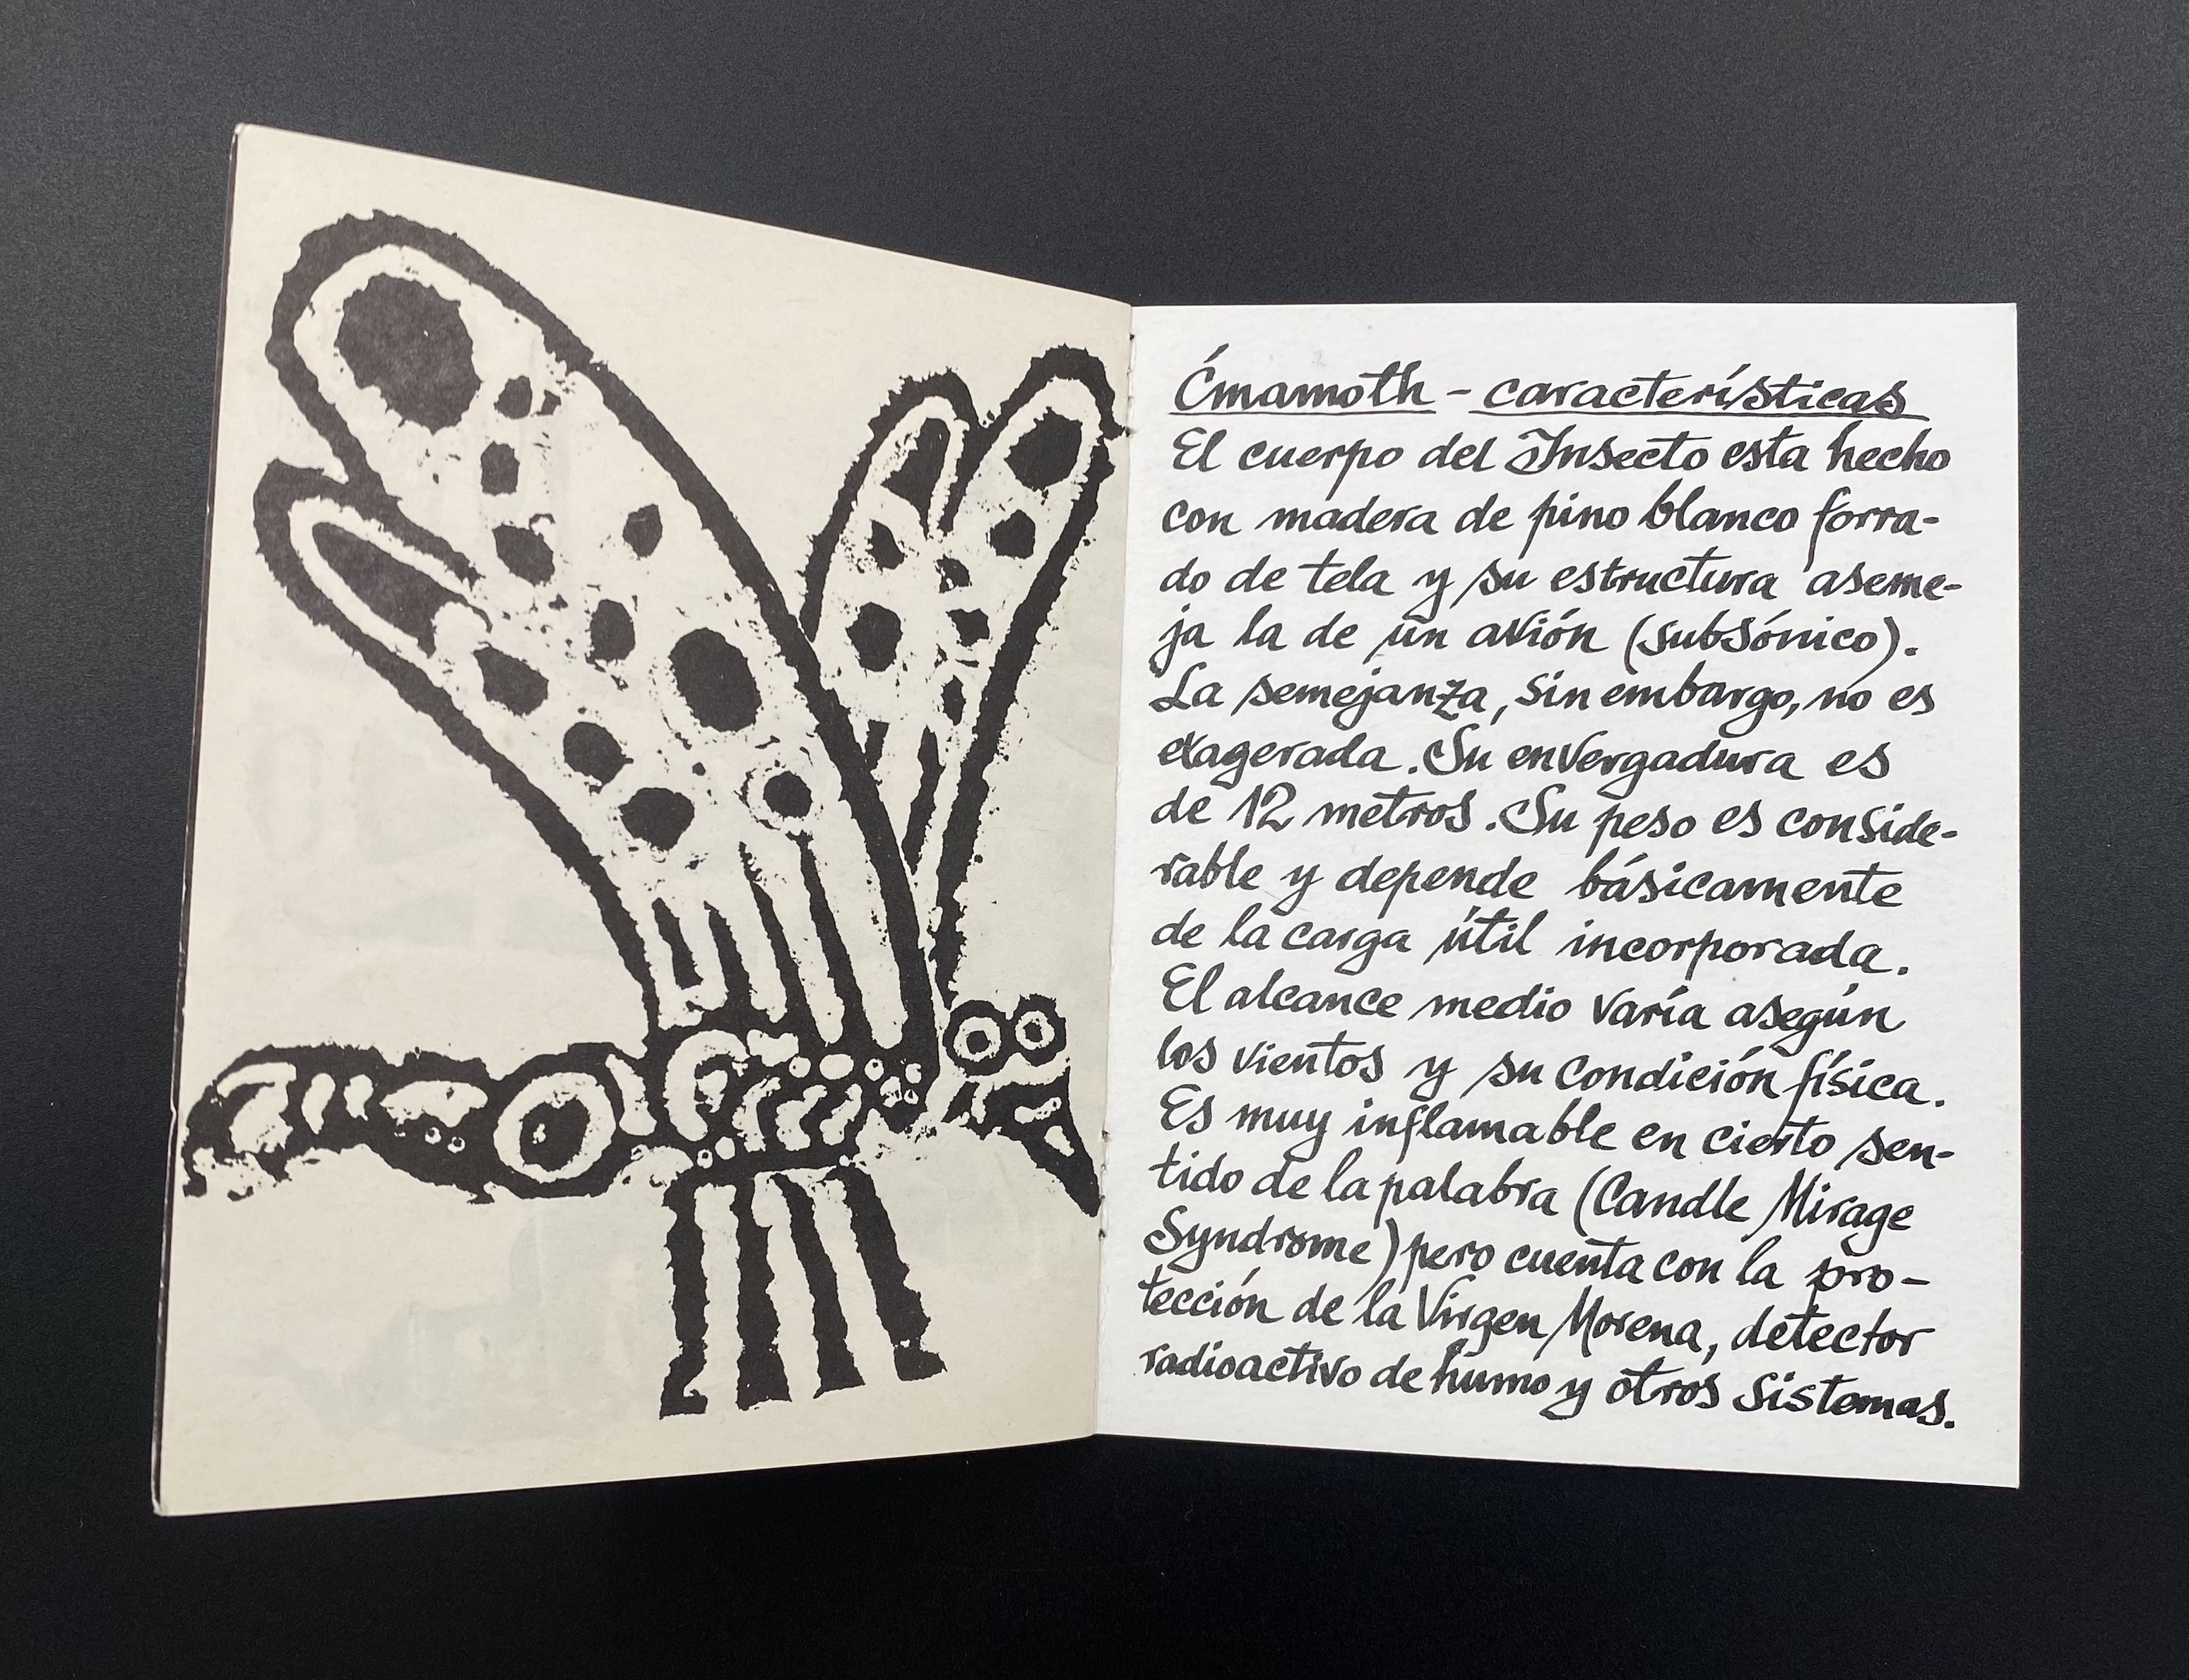 Ćmamoth - características
El cuerpo del Insecto esta hecho
con madera de pino blanco forra-
do de tela y su estructura aseme-
ja la de un avión (subsónico).
La semejanza, sin embargo, no es
exagerada. Su envergadura es
de 12 metros. Su peso es conside-
rable y depende básicamente
de la carga útil incorporada.
El alcance medio varía asegún
los vientos y su condición física.
Es muy inflamable en cierto sen-
tido de la palabra (Candle Mirage
Syndrome) pero cuenta con la pro-
tección de la Virgen Morena, detector
radioactivo de humo y otros sistemas.